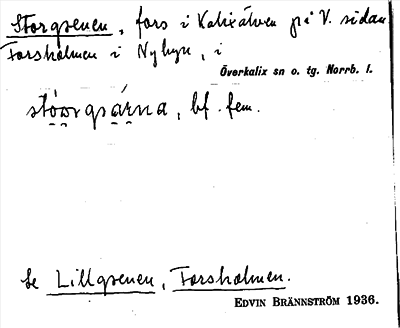 Storgsenen, fors i Kalixälven på V. sidan
Forsholmen i Nybyn, i
Överkalix sn o. tg. Norrb. l.
bf. fem.
Se Lillgsenen, Forsholmen.
EDVIN BRÄNNSTRÖM 1936.